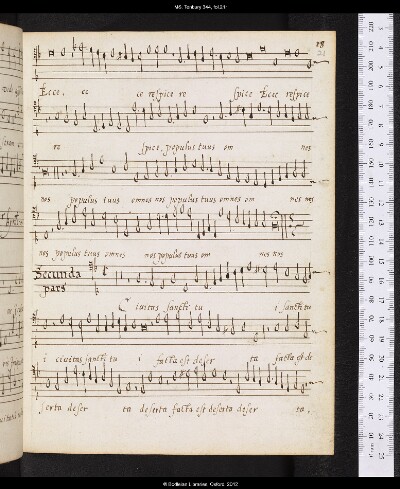 MS. Tenbury 344, fol.21r
Ecce, ec ce respice re spice Ecce respice
re spice, populus tuus om nes
nos populus tuus omnes nos populus tuus omnes om nes nos
nos populus tuus omnes nos populus tuus om nes nos
Secunda
pars
Ciuitas sancti tu i sancti tu
i ciuitas sancti tu i facta est deser ta facta est de
serta deser ta deserta facta est deserta deser ta,
© Bodleian Libraries, Oxford, 2012